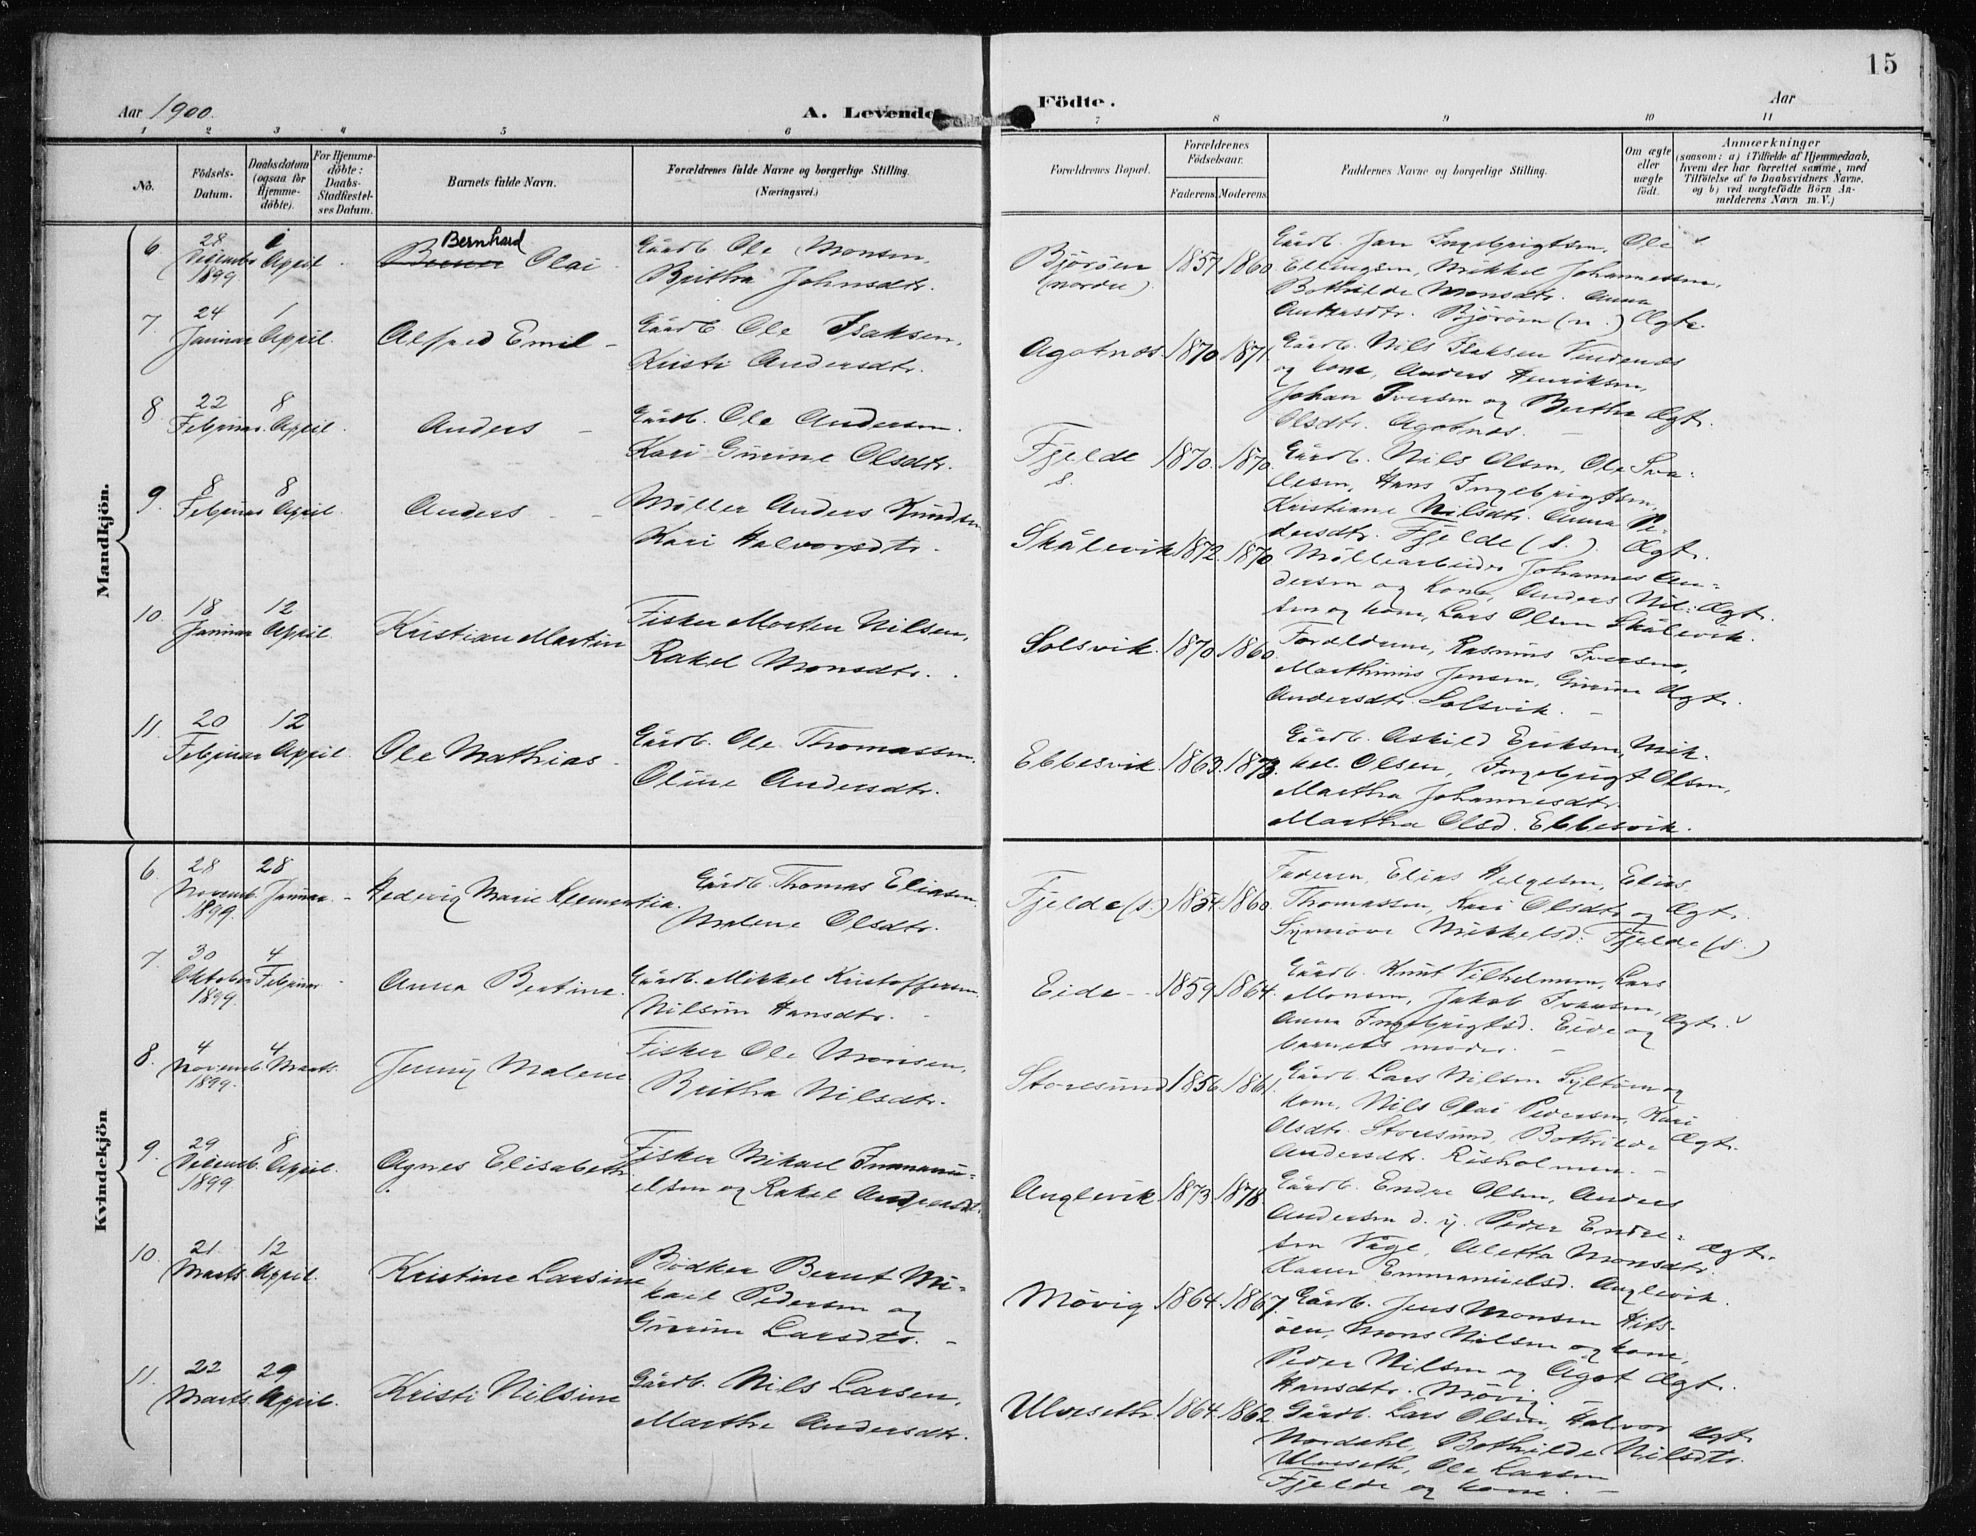 15
Aar 1900.
A. Levende
Födte.
Aar
1 2 3 4 5 6 7 8 9 10 11
No.
Födsels-
Datum.
Daabsdatum
(ogsaa for
Hjemme-
döbte).
For Hjemme-
döbte:
Daabs-
Stadfæstel-
ses Datum.
Barnets fulde Navn.
Forældrenes fulde Navne og borgerlige Stilling.
(Næringsvei.)
Forældrenes Bopæl.
Forældrenes
Födselsaar.
Faderens. Moderens.
Faddernes Navne og borgerlige Stilling.
Om ægte
eller
uægte
födt.
Anmærkninger
(saasom: a) i Tilfælde af Hjemmedaab,
hvem der har forrettet samme, med
Tilföielse af to Daabsvidners Navne,
og b) ved uægtefödte Börn An-
melderens Navn m. V.)
Mandkjön.
6 28 Decembr 1899 1 April Bernhard Olai
Gårdb. Ole Monsen,
Britha Johnsdtr.
Björöen (nordre) 1857 1860
Gårdb. Jan Ingebrigtsen, Ole
Ellingsen, Mikkel Johannessen,
Bothilde Monsdtr. Anna
Andersdtr. Björöen (n.) Ægte.
7. 24 Januar 1 April. Alfred Emil
Gårdb. Ole Isaksen,
Kristi Andersdtr.
Agotnæs 1870. 1871.
Gårdb. Nils Isaksen Vindenæs
og kone, Anders Henriksen,
Johan Iversen og Bertha Ægt.
Olsdtr. Agotnæs.
8 22 Februar 8 April. Anders
Gårdb. Ole Andersen.
Kari Gurine Olsdtr.
Fjelde s. 1870. 1870.
Gårdb. Nils Olsen, Ole Sva-
lesen, Hans Ingebrigtsen,
Kristiane Nilsdtr. Anna Pe-
dersdtr. Fjelde (s.). Ægt.
9. 8 Februar 8 April. Anders
Möller Anders Knudsen
Kari Halvorsdtr.
Skålevik 1872. 1870
Möllearbeider Johannes An-
dersen og Kone, Anders Nil- Ægt.
sen og kone, Lars Olsen Skålevik.
10. 18 Januar 12 April Kristian Martin
Fisker Morten Nilsen,
Rakel Monsdtr.
Solsvik. 1870. 1860
Forældrene, Rasmus Iversen,
Marthinus Jensen, Gurine Ægt.
Andersdtr. Solsvik.
11. 20 Februar 12 April. Ole Mathias
Gårdb. Ole Thomassen.
Oline Andersdtr.
Ebbesvik 1863. 1873.
Gårdb. Askild Eriksen, Mik-
kel Olsen, Ingebrigt Olsen,
Martha Johannesdtr.
Martha Olsd. Ebbesvik.
Kvindekjön
6. 28 Novemb. 1899. 28 Januar Hedevig Marie Klementia.
Gårdb. Thomas Eliasen
Malene Olsdtr.
Fjelde (s.) 1854. 1860.
Faderen, Elias Helgesen, Elias
Thomassen, Kari Olsdtr. og Ægt.
Synnöve Mikkelsd. Fjelde (s.)
7. 30 Oktober 1899. 4 Februar Anna Bertine.
Gårdb. Mikkel Kristoffersen.
Nilsine Hansdtr.
Eide 1859. 1864.
Gårdb. Knut Vilhelmsen, Lars
Monsen, Jakob Ivarsen, Ægt.
Anna Ingebrigtsd. Eide og
barnets moder.
8. 4 Novemb. 1899. 4 Marts. Jenny Malene
Fisker Ole Monsen,
Britha Nilsdtr.
Storesund 1856. 1861.
Gårdb. Lars Nilsen Syltöen og
kone, Nils Olai Pedersen, Kari
Olsdtr. Storesund, Bothilde Ægt.
Andersdtr. Risholmen.
9. 29 Decemb. 1899 8 April. Agnes Elisabeth
Fisker Mikael Immanu-
elsen og Rakel Andersdt.
Anglevik 1873. 1878.
Gårdb. Endre Olsen, Anders
Andersen d. y. Peder Endre-
sen Våge, Aletta Monsdtr. Ægt.
Karen Emmanuelsd. Anglevik.
10. 21. Marts. 12 April. Kristine Larsine
Bödker Bernt Mi-
kael Pedersen og
Gurine Larsdtr.
Mövig 1864. 1867.
Gårdb. Jens Monsen Hits-
öen, Mons Nilsen og kone,
Peder Nilsen og Ågot Ægt.
Hansdtr. Mövig.
11. 22 Marts. 29 April. Kristi Nilsine
Gårdb. Nils Larsen,
Marthe Andersdtr.
Ulveseth 1864. 1862
Gårdb. Lars Olsen, Halvor Ægt.
Nordahl, Bothilde Nilsdtr.
Ulveseth, Ole Larsen
Fjelde og kone.